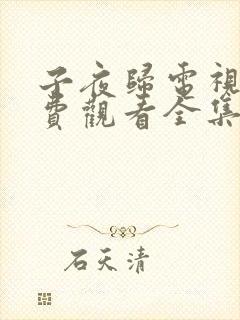 子夜歸電視
費觀看全集
石天清